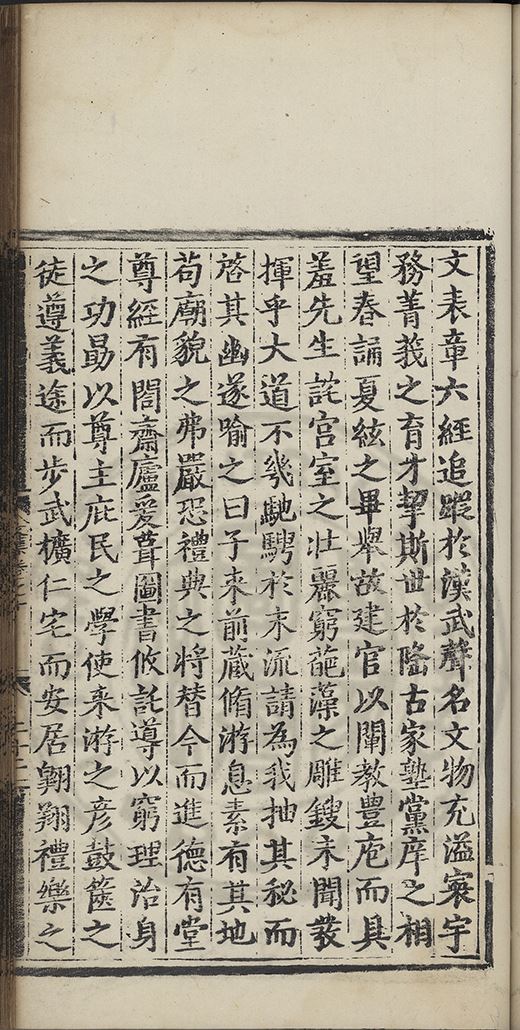 文表章六經追蹤於漢武聲名文物充溢寰宇
務菁莪之育才挈斯世於隆古家塾黨庠之相
望春誦夏絃之畢舉故建官以闡教豐庖而具
羞先生詫宫室之壯麗窮葩藻之雕鎪未聞發
揮乎大道不幾馳騁於末流請為我抽其秘而
啓其幽遂喻之曰子来前蔵脩游息素有其地
苟廟貌之弗嚴恐禮典之將替今而進德有堂
尊經有閣齋廬爰葺圖書攸託導以窮理治身
之功勗以尊主庇民之學使来游之彦鼓篋之
徒遵義途而步武櫎仁宅而安居翺翔禮樂之